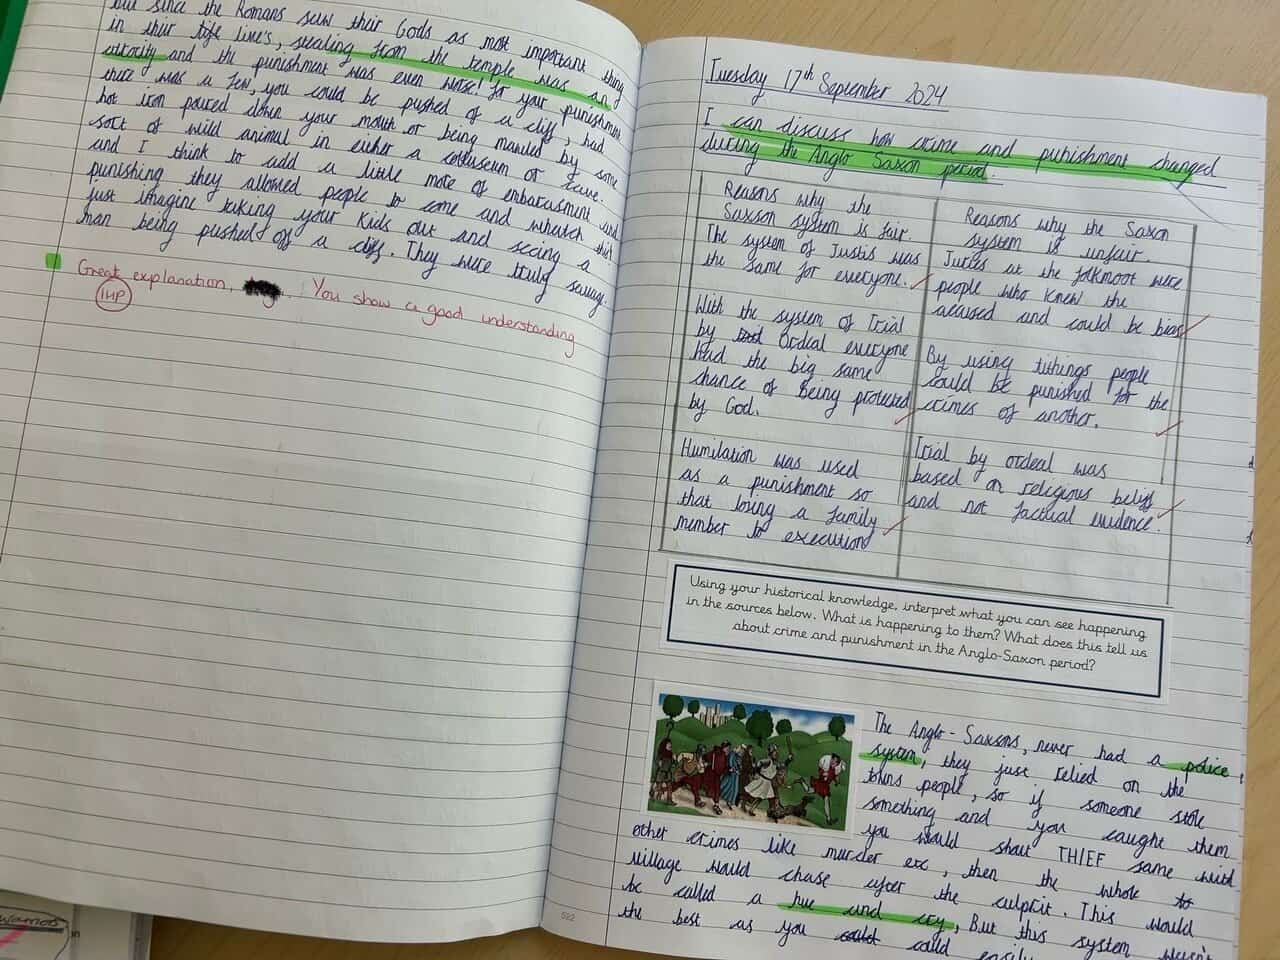 but since the Romans saw their Gods as most important thing
in their life line's, stealing from the temple was an
atrocity and the punishment was even worse! for your punishment
there was a few, you could be pushed of a cliff, had
hot iron poured down your mouth or being mauled by some
sort of wild animal in either a colluseum or cave.
and I think to add a little more of embarasment and
punishing they allowed people to come and whatch this
just imagine taking your kids out and seeing a
man being pushed off a cliff. They were truly savage.
Great explanation. You show a good understanding
1HP
Tuesday 17th September 2024
I can discuss how crime and punishment changed
during the Anglo Saxon period.
Reasons why the
Saxson system is fair.
The system of Justis was
the same for everyone.
With the system of Trial
by Ordeal everyone
had the big same
chance of Being protected
by God.
Humilation was used
as a punishment so
that losing a family
member to execution
Reasons why the Saxon
system is unfair.
Juries at the folkmoot were
people who knew the
acused and could be bias
By using tithings people
could be punished for the
crimes of another.
Trial by ordeal was
based on religious beliefs
and not factual evidence.
Using your historical knowledge, interpret what you can see happening
in the sources below. What is happening to them? What does this tell us
about crime and punishment in the Anglo-Saxon period?
The Anglo-Saxons, never had a police
system, they just relied on the
towns people, so if someone stole
something and you caught them
you would shout THIEF same with
other crimes like murder etc, then the whole to
village would chase after the culprit. This would
be called a hue and cry, But this system wasn't
the best as you could could easily
522